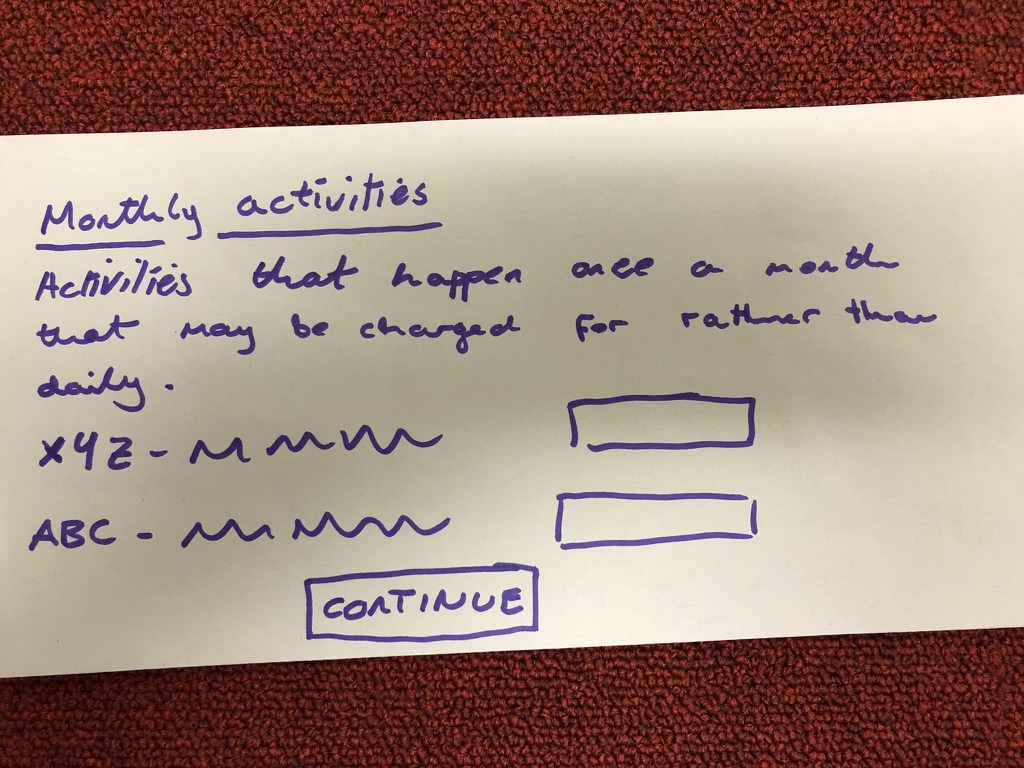 Monthly activities
Activities that happen once a month
that may be charged for rather than
daily.
XYZ -
ABC -
CONTINUE